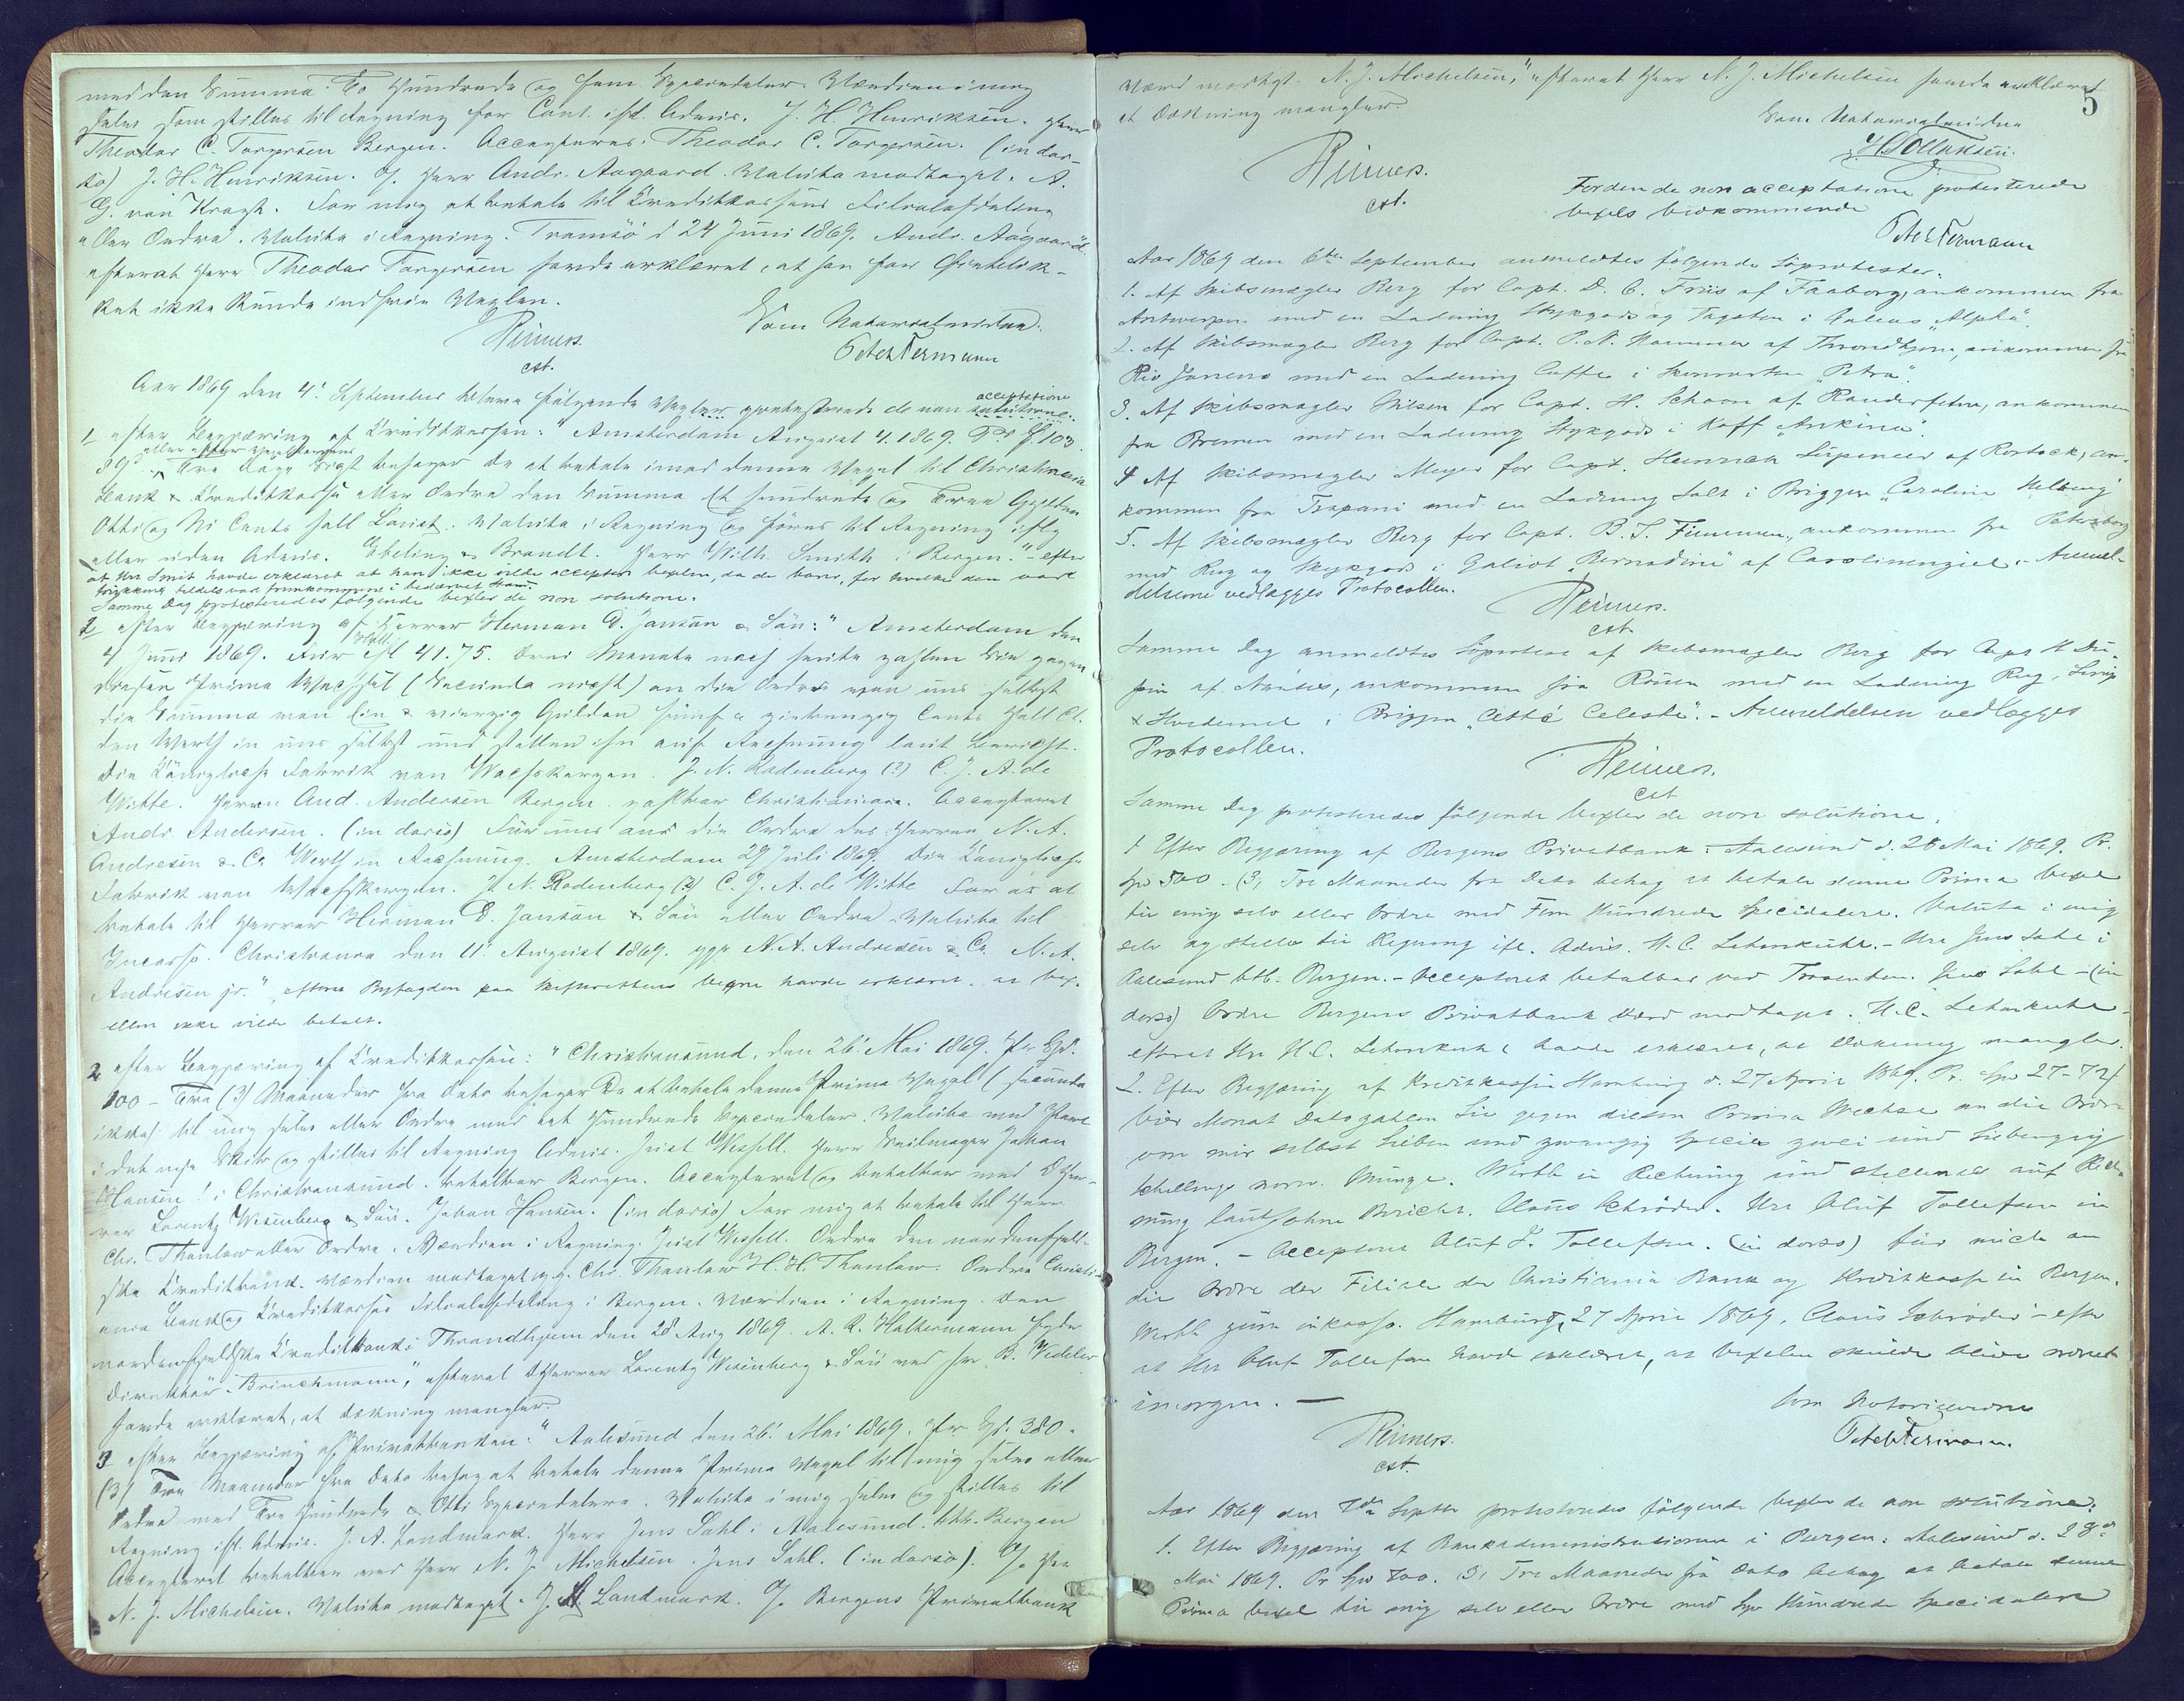 med den Summa To Hundrede og fem Speciedaler. Værdien i mig
selv som stilles til Regning for Cont. ifl. Advis. J. H. Henriksen. Herr
Theodor C. Torgersen Bergen. Accepteres. Theodor C. Torgersen. (in dor-
so) J. H. Henriksen. O/ Herr Andr. Aagaard. Valuta modtaget. A.
G. von Krogh. For mig at betale til Creditkassens Filialafdeling
eller Ordre. Valuta i Regning. Tromsö d 24 Juni 1869. Andr. Aagaard"
efterat Herr Theodor Torgersen havde erklæret, at han for Öieblik-
ket ikke kunde indfrie Vexlen.
Som Notarialvidne.
Reimers.
cst.
Peter Fermann
Aar 1869 den 4' September bleve følgende Vexler protesterede de non solutione.
acceptatione
1 efter Begjæring af Creditkassen: "Amsterdam August 4. 1869. Pr f 103.
89 Tre Dage Sigt behager De at betale imod denne Vexel til Christiania
Bank & Creditkasse eller Ordre den Summa Et hundrede og Tree Gylden
Otti og Ni Cents holl Courant. Valuta i Regning og föres til Regning ifly
eller uden Advis. Ebeling & Brandt. Herr Wilh. Smith i Bergen." - efter
at Hrr Smit havde erklæret at han ikke vilde acceptere vexlen, da de varer, for hvilke den var
trykking tildels var fremkommen i bedærvet Stand.
Samme Dag protesteredes følgende vexler de non solutione.
2 efter Begjæring af Herrer Herman D. Janson & Sön: "Amsterdam den
4 Juni 1869. Für Holl. Ct 41.75. Drei Monate nach heute zahlen Sie gegen
diesen Prima Wechsel (Secunda nicht) an die Ordre von uns selbst
die Summa von Ein & vierzig Gulden fünf & siebenzig Cents Holl Ct.
den Werth in uns selbst und stellen ihn auf Rechnung laut Bericht.
Die Königliche Fabrik von Wachskerzen. J. N. Rodenberg (?) C. J. A. de
Witte. Herrn And. Andersen Bergen. zahlbar Christiania. Accepteret
Andr Andersen. (in dorso) Für uns an die Ordre des Herren N. A.
Andresen & Co Werth in Rechnung. Amsterdam 29 Juli 1869. Die Königliche
Fabrik von Wachskerzen. J. N. Rodenberg (?) C. J. A. de Witte For os at
betale til Herrer Herman D. Janson & Sön eller Ordre. Valuta til
Incasso. Christiania den 11' August 1869. ppr N. A. Andresen & Co. N. A.
Andresen jr." efterat Byfogden paa Skifterettens Vegne havde erklæret, at vex-
ellen ikke vilde betales.
2 efter Begjæring af Creditkassen: "Christiansund, den 26' Mai 1869. Pr Spd.
100 - Tre (3) Maaneder fra Dato behager De at betale denne Prima Vexel (Secunda
ikke) til mig selv eller Ordre med Et Hundrede Speciedaler. Valuta med
i det nye Skib og stilles til Regning Advis. Just Wessell. Herr Seilmager Johan
Hansen i Christiansund. betalbar Bergen. Accepteret og betalbar med D'Her-
rer Lorentz Wesenberg & Sön. Johan Hansen. (in dorso) For mig at betale til Herr
Chr. Thanlow eller Ordre. Værdien i Regning. Just Wessell. Ordre den nordenfjeld-
ske Creditbank. Værdien modtaget p.p. Chr. Thanlow H. H. Thanlow. Ordre Christi-
ania Bank og Creditkasses Filialafdeling i Bergen. Værdien i Regning. Den
nordenfjeldske Creditbank i Throndhjem den 28 Aug 1869. A. R. Haltermann
Direktör. Brinchmann," efterat D'Herrer Lorentz Wesenberg & Sön ved Hr. B. Vedeler
havde erklæret, at Dækning mangler.
3 efter Begjæring af Privatbanken: "Aalesund den 26' Mai 1869. Pr Spd. 380.
(3) Tre Maaneder fra Dato behag at betale denne Prima Vexel til mig selv eller
Ordre med Tre Hundrede & Otti Speciedalere. Valuta i mig selv og stilles til
Regning ifl. Advis. J. A. Landmark. Herr Jens Dahl i Aalesund. btb. Bergen
Accepteret betalbar ved Herr N. J. Michelsen. Jens Dahl. (in dorso). O/ Hr
N. J. Michelsen. Valuta modtaget. J. A. Landmark. O/ Bergens Privatbank
5
Værd modtagt. N. J. Michelsen," efterat Herr N. J. Michelsen havde erklæret
at Dækning mangler.
Som Notarialvidne
Reimers.
cst.
H Tollaksen.
For den de non acceptatione protesterede
vexels vedkommende
Peter Fermann
Aar 1869 den 6te September anmeldtes følgende Söprotester.
1. Af Skibsmægler Berg for Capt. D. C. Friis af Faaborg, ankommen fra
Antwerpen med en Ladning Stykgods og Tagsten i Galeas "Alpha".
2. Af Skibsmægler Berg for Capt. P. N. Hammer af Throndhjem, ankommen fra
Rio Janeiro med en Ladning Caffe i Skonnerten "Petra".
3. Af Skibsmægler Nilsen for Capt. H. Schoon af Randersfehn, ankommen
fra Bremen med en Ladning Stykgods i Kuff "Ankina".
4 Af Skibsmægler Meyer for Capt. Heinrich af Rostock, an-
kommen fra Trapani med en Ladning Salt i Briggen "Caroline Helberg"
5. Af Skibsmægler Berg for Capt. B. J. Fimmen, ankommen fra Petersborg
med Rug og Stykgods i Galiot "Bernadine" af Carolinensiel. - Anmel-
delserne vedlægges Protocollen.
Reimers.
cst.
Samme Dag anmeldtes Söprotest af Skibsmægler Berg for Capt H. Du-
pin af Nantes, ankommen fra Rouen med en Ladning Rug,
& Hvedemel i Briggen "Cetté Celeste". - Anmeldelsen vedlægges
Protocollen.
Reimers.
cst
Samme Dag protesteredes følgende vexler de non solutione.
1 Efter Begjæring af Bergens Privatbank: Aalesund d. 28 Mai 1869. Pr.
Spd 500. (3) Tre Maaneder fra Dato behag at betale denne Prima Vexel
til mig selv eller Ordre med Fem Hundrede Speciedalere. Valuta i mig
selv og stilles til Regning ifl. Advis. H. C. Lethenkuhl. - Herr Jens Dahl i
Aalesund btb. Bergen. - Accepteret betalbar ved Trassenten. Jens Dahl - (in
dorso) Ordre Bergens Privatbank Værd modtaget. H. C. Lethenkuhl -
efterat Hrr H. C. Lethenkuhl havde erklæret, at Dækning mangler.
2. Efter Begjæring af Kreditkassen Hamburg d. 27 April 1869. Pr. Spd 27-72 f
Vier Monat Dato zahlen Sie gegen diesen Prima Wechsel an die Ordre
von mir selbst Sieben und zwanzig Species zwei und siebenzig
Schellings norw. Münze. Werth in Rechnung und stellen es auf Rech-
nung laut/ohne Bericht. Claus Schröder. Hrr Oluf Tollefsen in
Bergen. - Accepteret Oluf J. Tollefsen. (in dorso) für mich an
die Ordre der Filiale der Christiania Bank og Kreditkasse in Bergen.
Werth zum inkasso. Hamburg, 27 April 1869. Claus Schröder - efter
at Hrr Oluf Tollefsen havde erklæret, at Vexelen skulde blive ordnet
imorgen. —
Som Notarialvidne
Reimers.
cst.
Peter Fermann.
Aar 1869 den 7de Septbr protesteredes følgende vexler de non solutione:
1. Efter Begjæring af Bankadministrationen i Bergen: Aalesund d. 28de
Mai 1869. Pr Spd 700. 3, Tre Maaneder fra Dato behag at betale denne
Prima Vexel til mig selv eller Ordre med Syv Hundrede Speciedalere